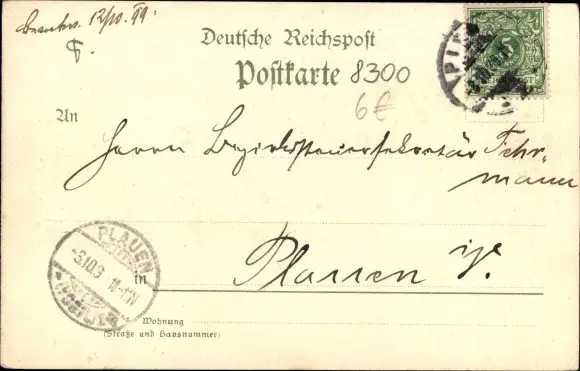 Beantw. 12/10. 99.
F.
Deutsche Reichspost
Postkarte 8300
6€
An
Herrn Bezirkssteuersekretär Fehr-
mann
in Plauen i/V.
PLAUEN
-9.10.9 10-11V
Wohnung
(Straße und Hausnummer)